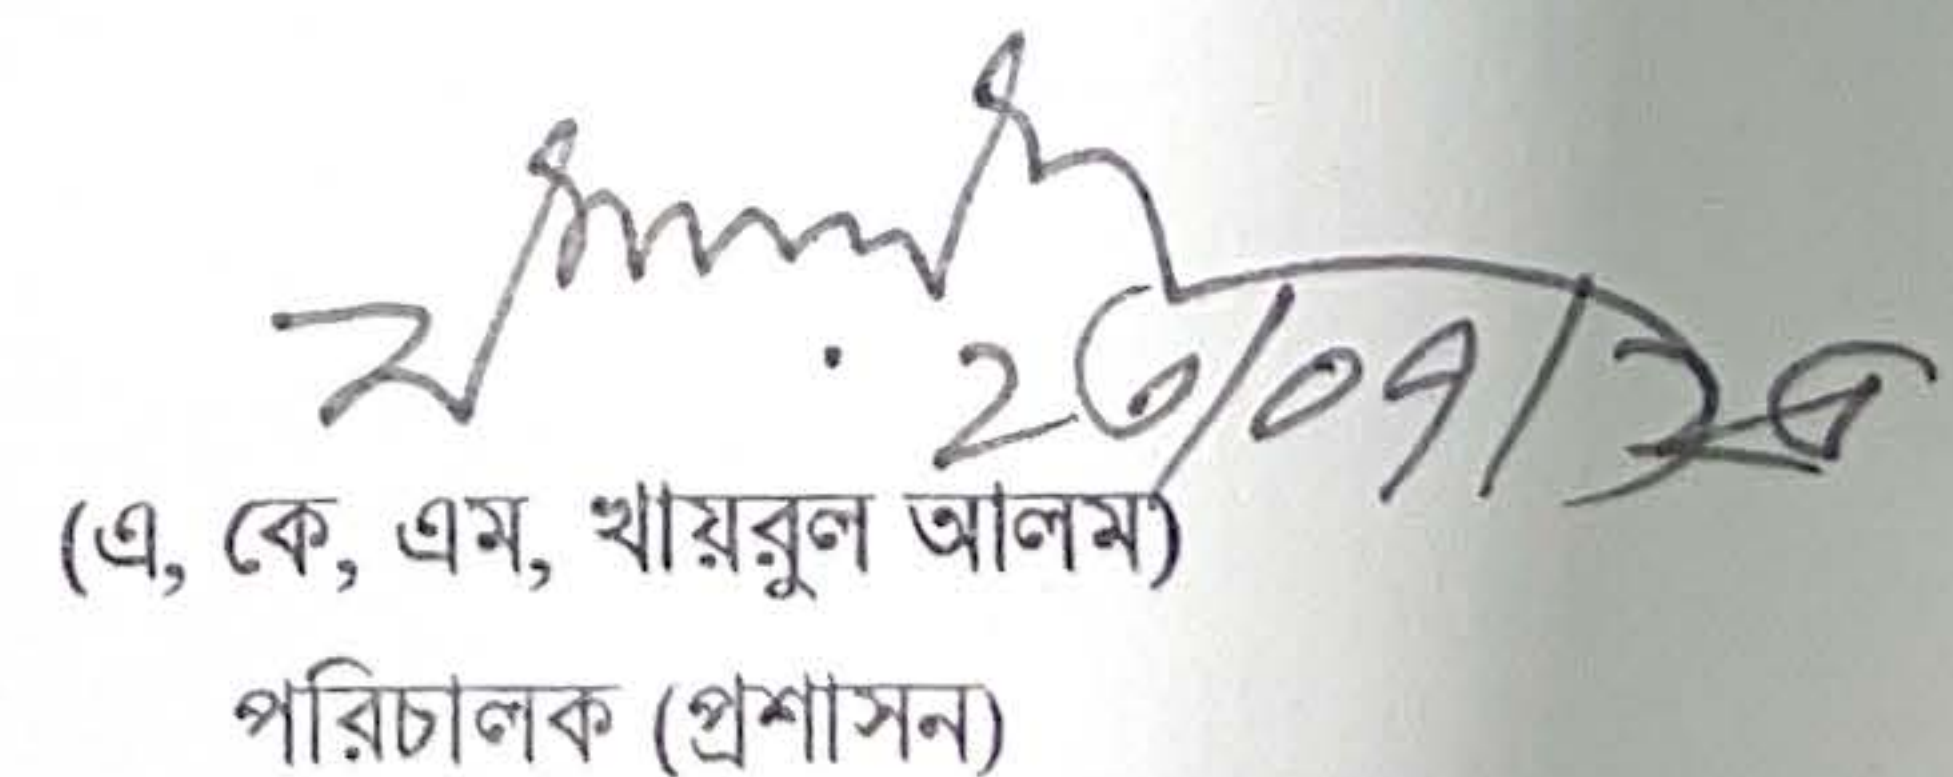 ২৩/০৭/২৫
(এ, কে, এম, খায়রুল আলম)
পরিচালক (প্রশাসন)